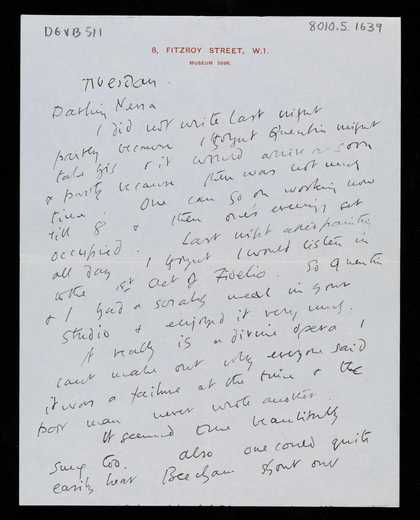 DGVB 511
8010.5.1639
8, FITZROY STREET, W.1.
MUSEUM
Tuesday.
Darling Nessa
I did not write last night
partly because I thought Quentin might
take his & it would arrive as soon
& partly because there was not much
time. One can go on working now
till 8 & then one's evening get
occupied. Last night after painting
all day I thought I would listen in
to the 1st act of Fidelio. So Quentin
& I had a scratch meal in your
studio & enjoyed it very much.
It really is a divine opera I
cant make out why everyone said
it was a failure at the time & the
poor man never wrote another.
It seemed to me beautifully
sung too. also one could quite
easily hear Beecham shout out